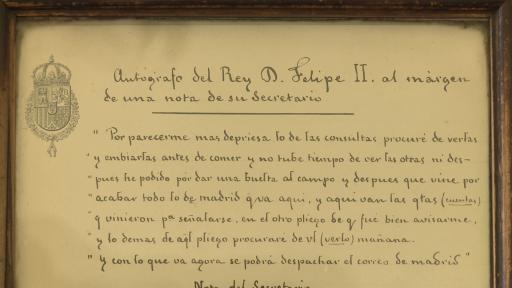 Autógrafo del Rey D. Felipe II. al márgen
de una nota de su secretario
" Por parecerme mas depriesa lo de las consultas procuré de verlas
" y embiarlas antes de comer y no tube tiempo de ver las otras ni des-
" pues he podido por dar una buelta al campo y despues que vine por
" acabar todo lo de madrid q̃ va aqui, y aqui van las q̃tas (cuentas)
" q̃ vinieron pª señalarse, en el otro pliego de q̃ fué bien avisarme,
" y lo demas de aq̃l pliego procuraré de vl (verlo) mañana.
" Y con lo que va agora se podrá despachar el correo de madrid "
Nota del Secretario